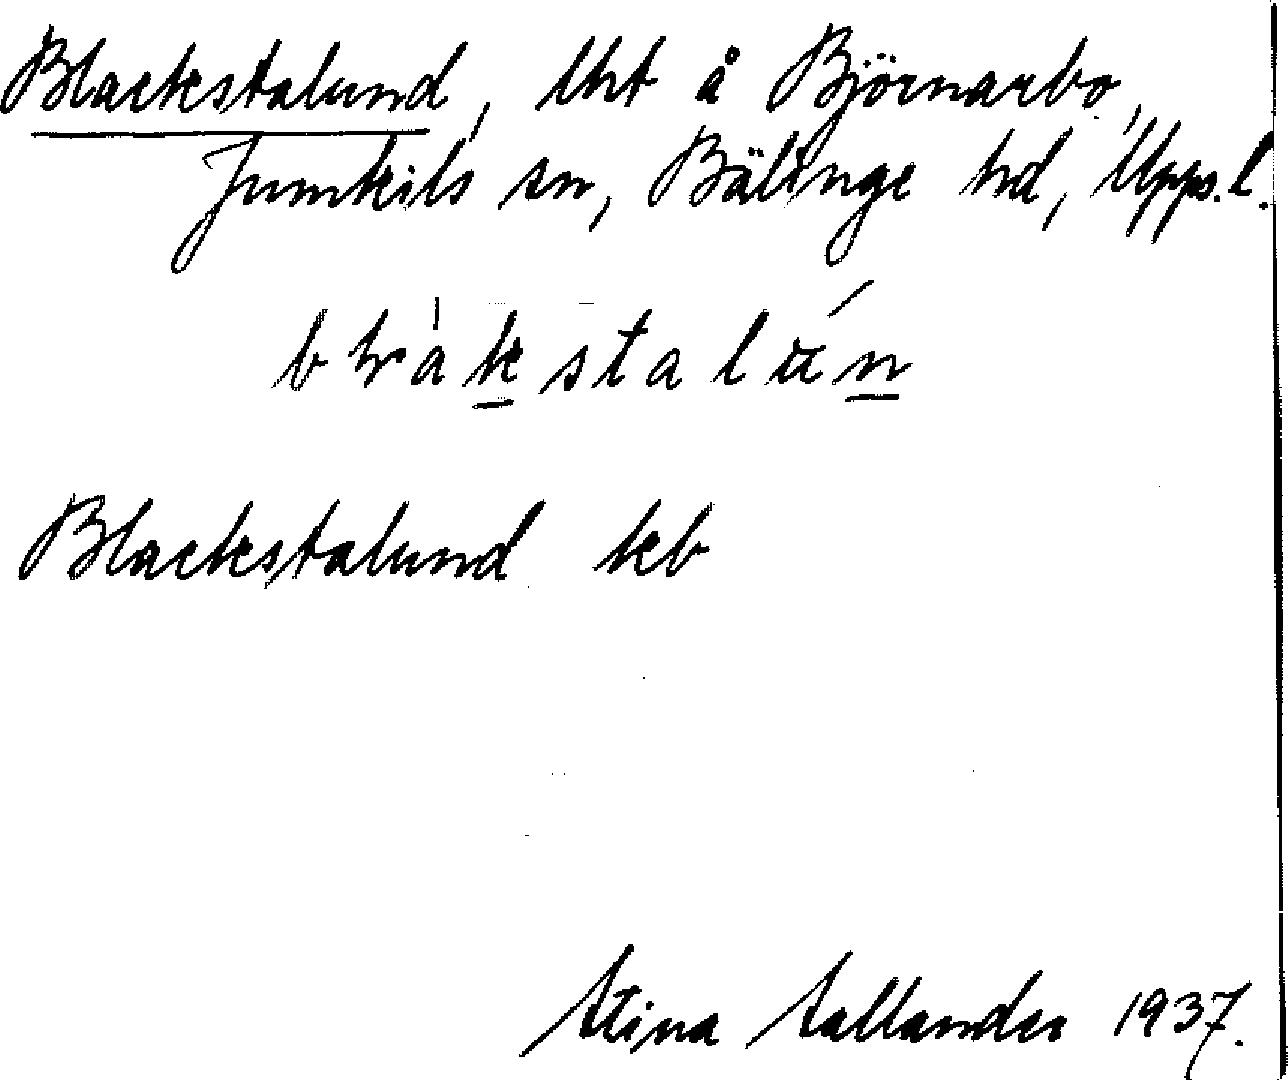 Blackstalund, lht å Björnarbo,
Jumkils sn, Bälinge hd, Uppl.
Blackstalund kb
Stina Sallander 1937.